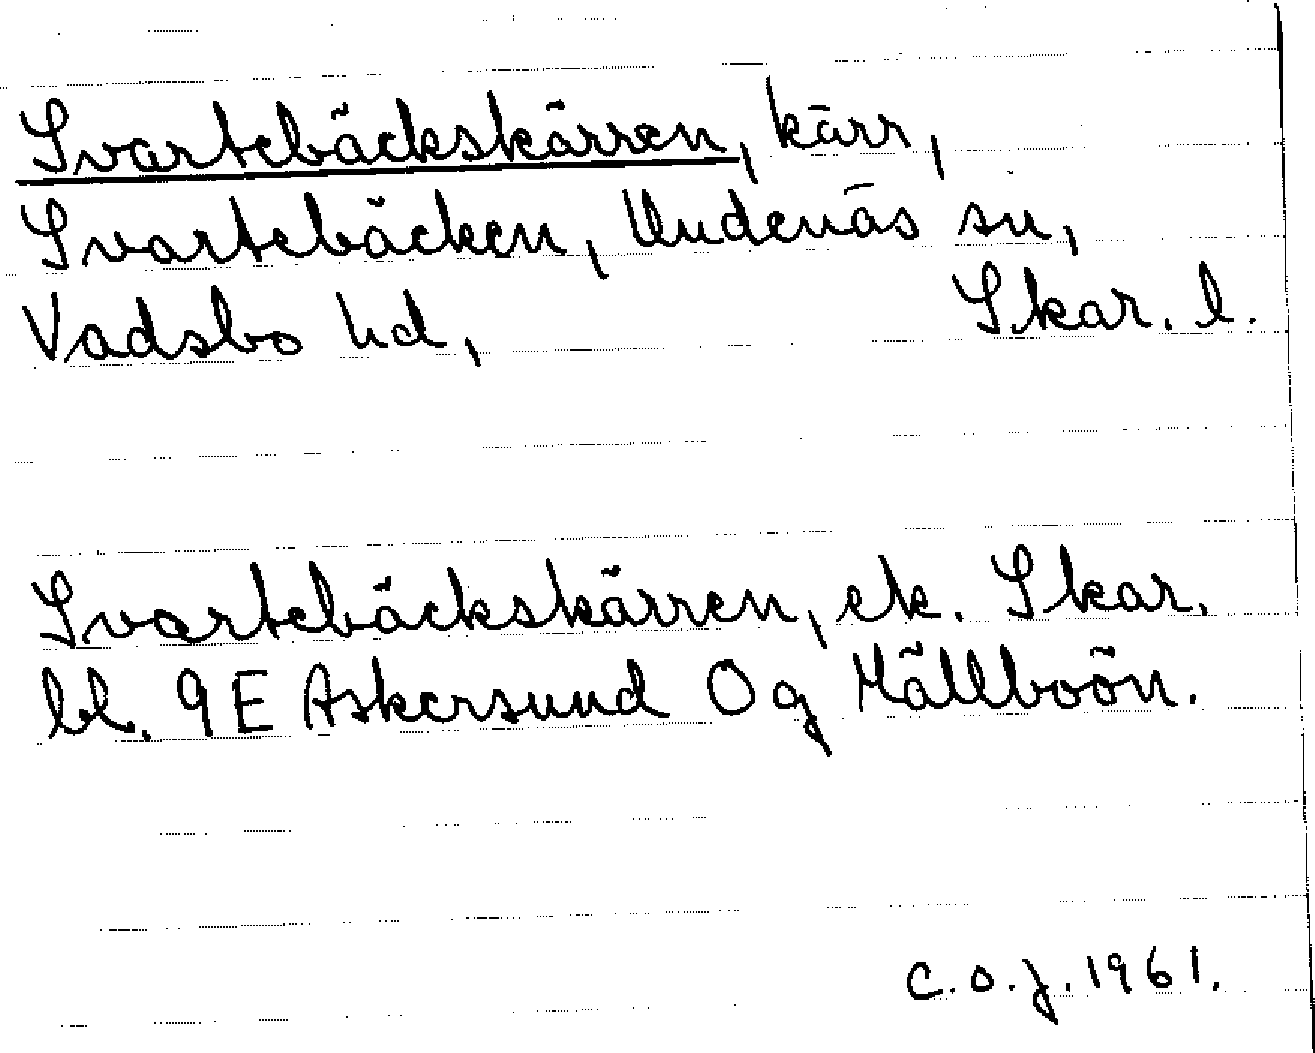 Svartebäckskärren, kärr,
Svartebäcken, Undenäs sn,
Vadsbo hd, Skar. l.
Svartebäckskärren, ek. Skar.
bl. 9E Askersund Og Hällboön.
C.O.J. 1961.